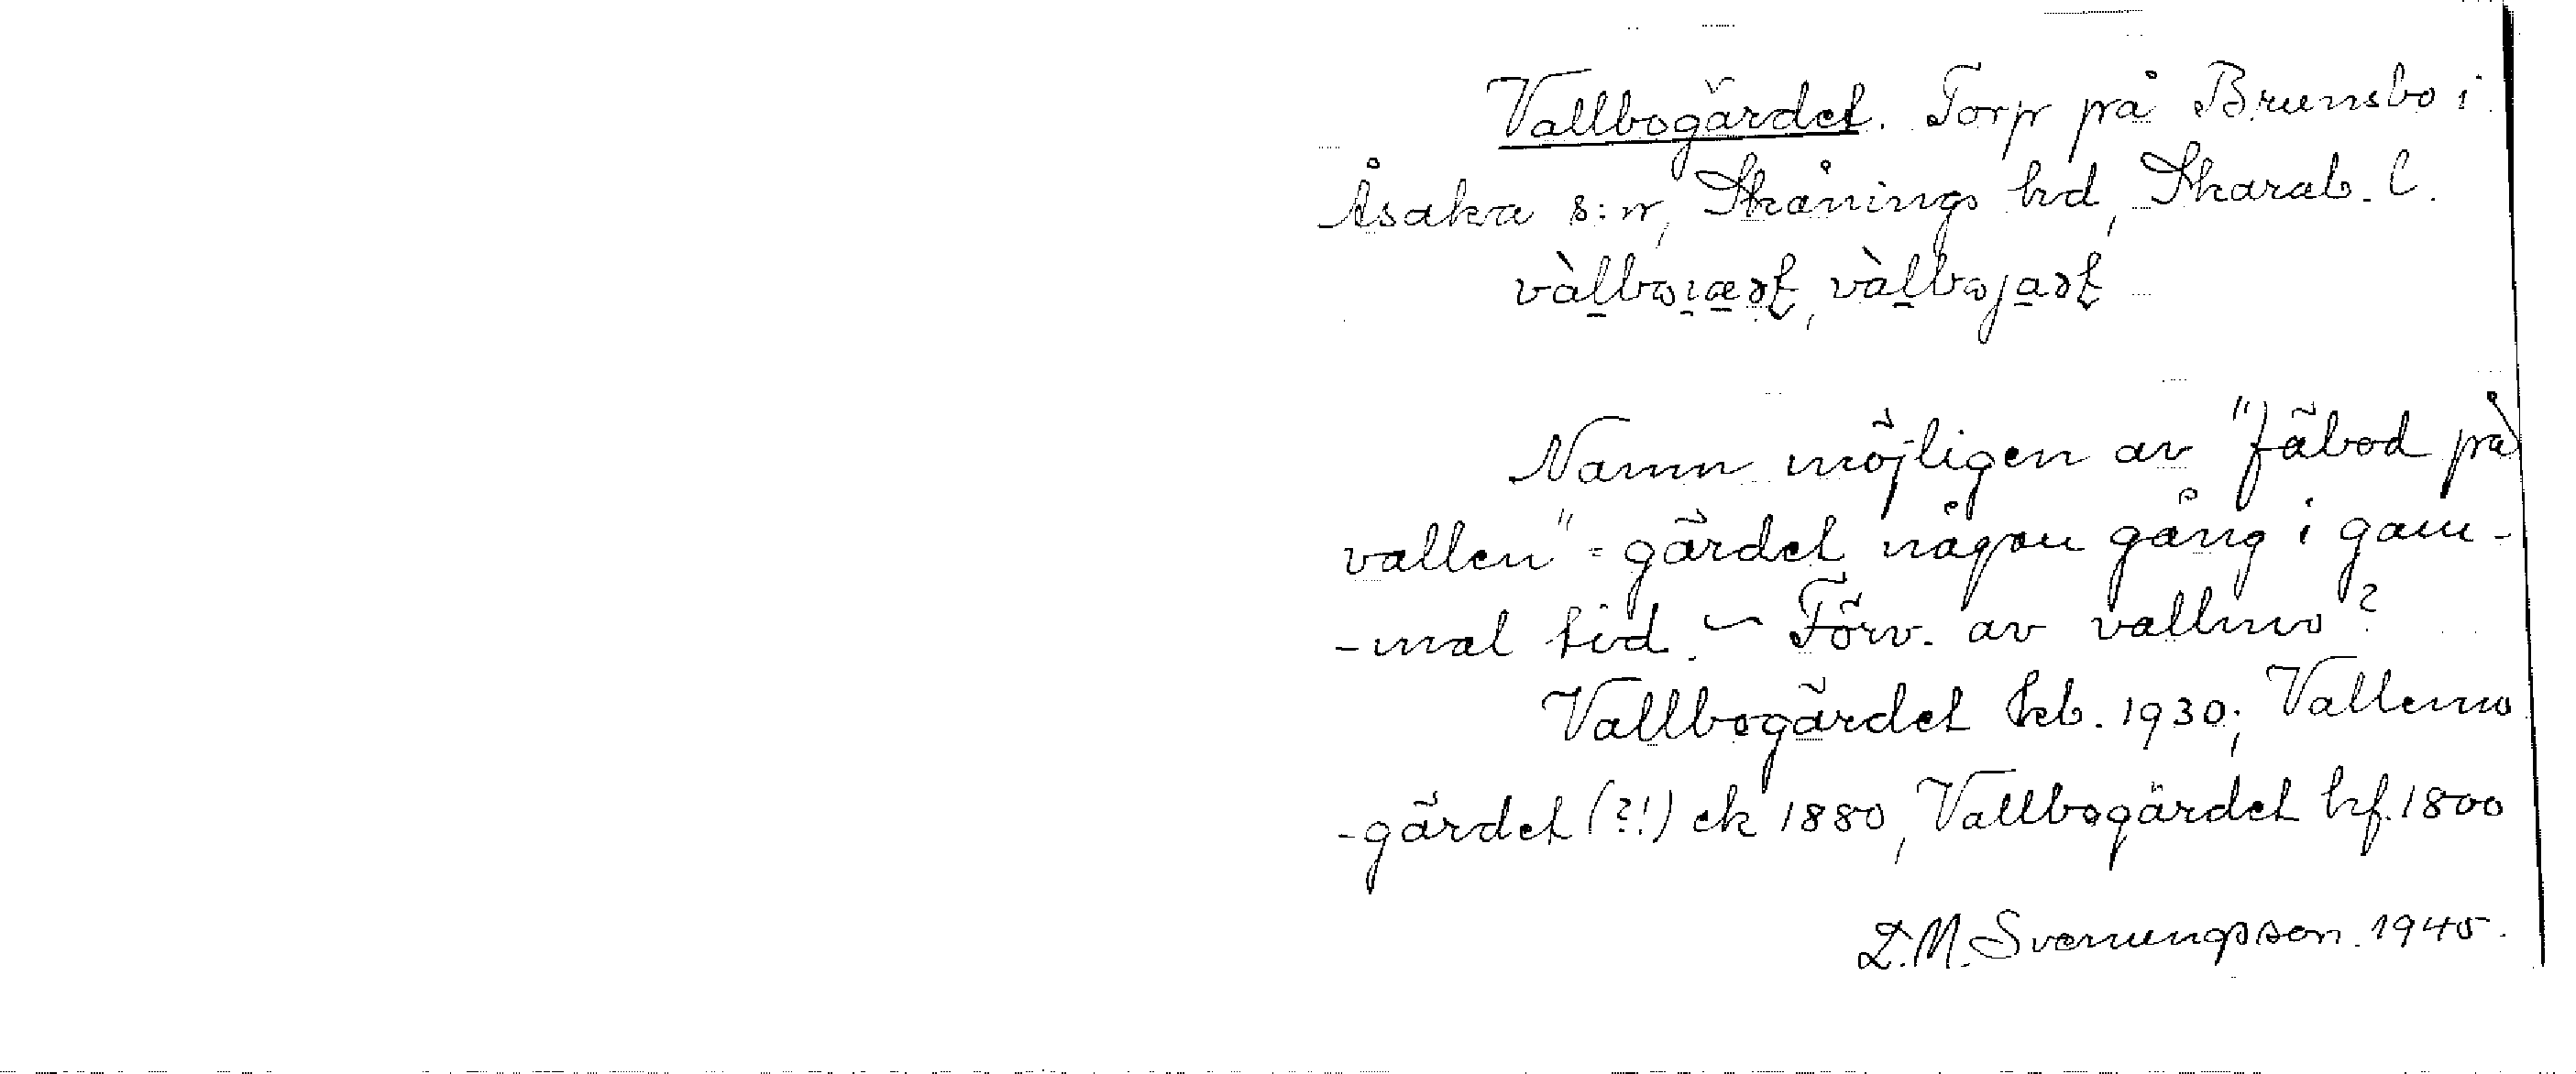 Vallbogärdet. Torp på Brunsbo i
Åsaka s:n, Skånings hd, Skarab. l.
vàlboɪæɚt, vàlbojaɚt
Namn möjligen av "fäbod på
vallen"-gärdet någon gång i gam-
-mal tid. ~ Förv. av vallmo?
Vallbogärdet kb. 1930; Vallemo
-gärdet (?!) ek 1880, Vallbogärdet hf. 1800
D.M. Svenungsson. 1945.